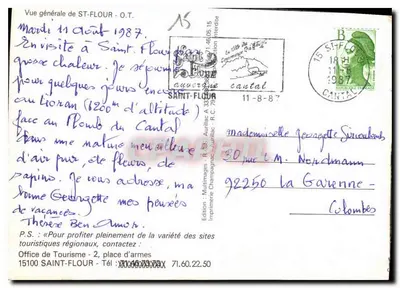 Vue générale de ST-FLOUR - O.T.
15
mardi 11 Août 1987.
En visite à Saint. Flour
grosse chaleur. Je séjourne
pour quelques jours encore
au Lioran (1200m d'altitude)
face au Plomb du Cantal
dans une nature merveilleuse
d'air pur, de fleurs, de
sapins. Je vous adresse, ma
bonne Georgette mes pensées
de vacances.
Thérèse Ben
P.S. : «Pour profiter pleinement de la variété des sites
touristiques régionaux, contactez :
Office de Tourisme - 2, place d'armes
15100 SAINT-FLOUR - Tél : 71.60.22.50
auvergne cantal
SAINT-FLOUR 11-8-87
15 ST-FLOUR
18H
11-8
1987
CANTAL
B
mademoiselle Georgette
30 rue M. Nordmann
92250 La Garenne-
Colombes